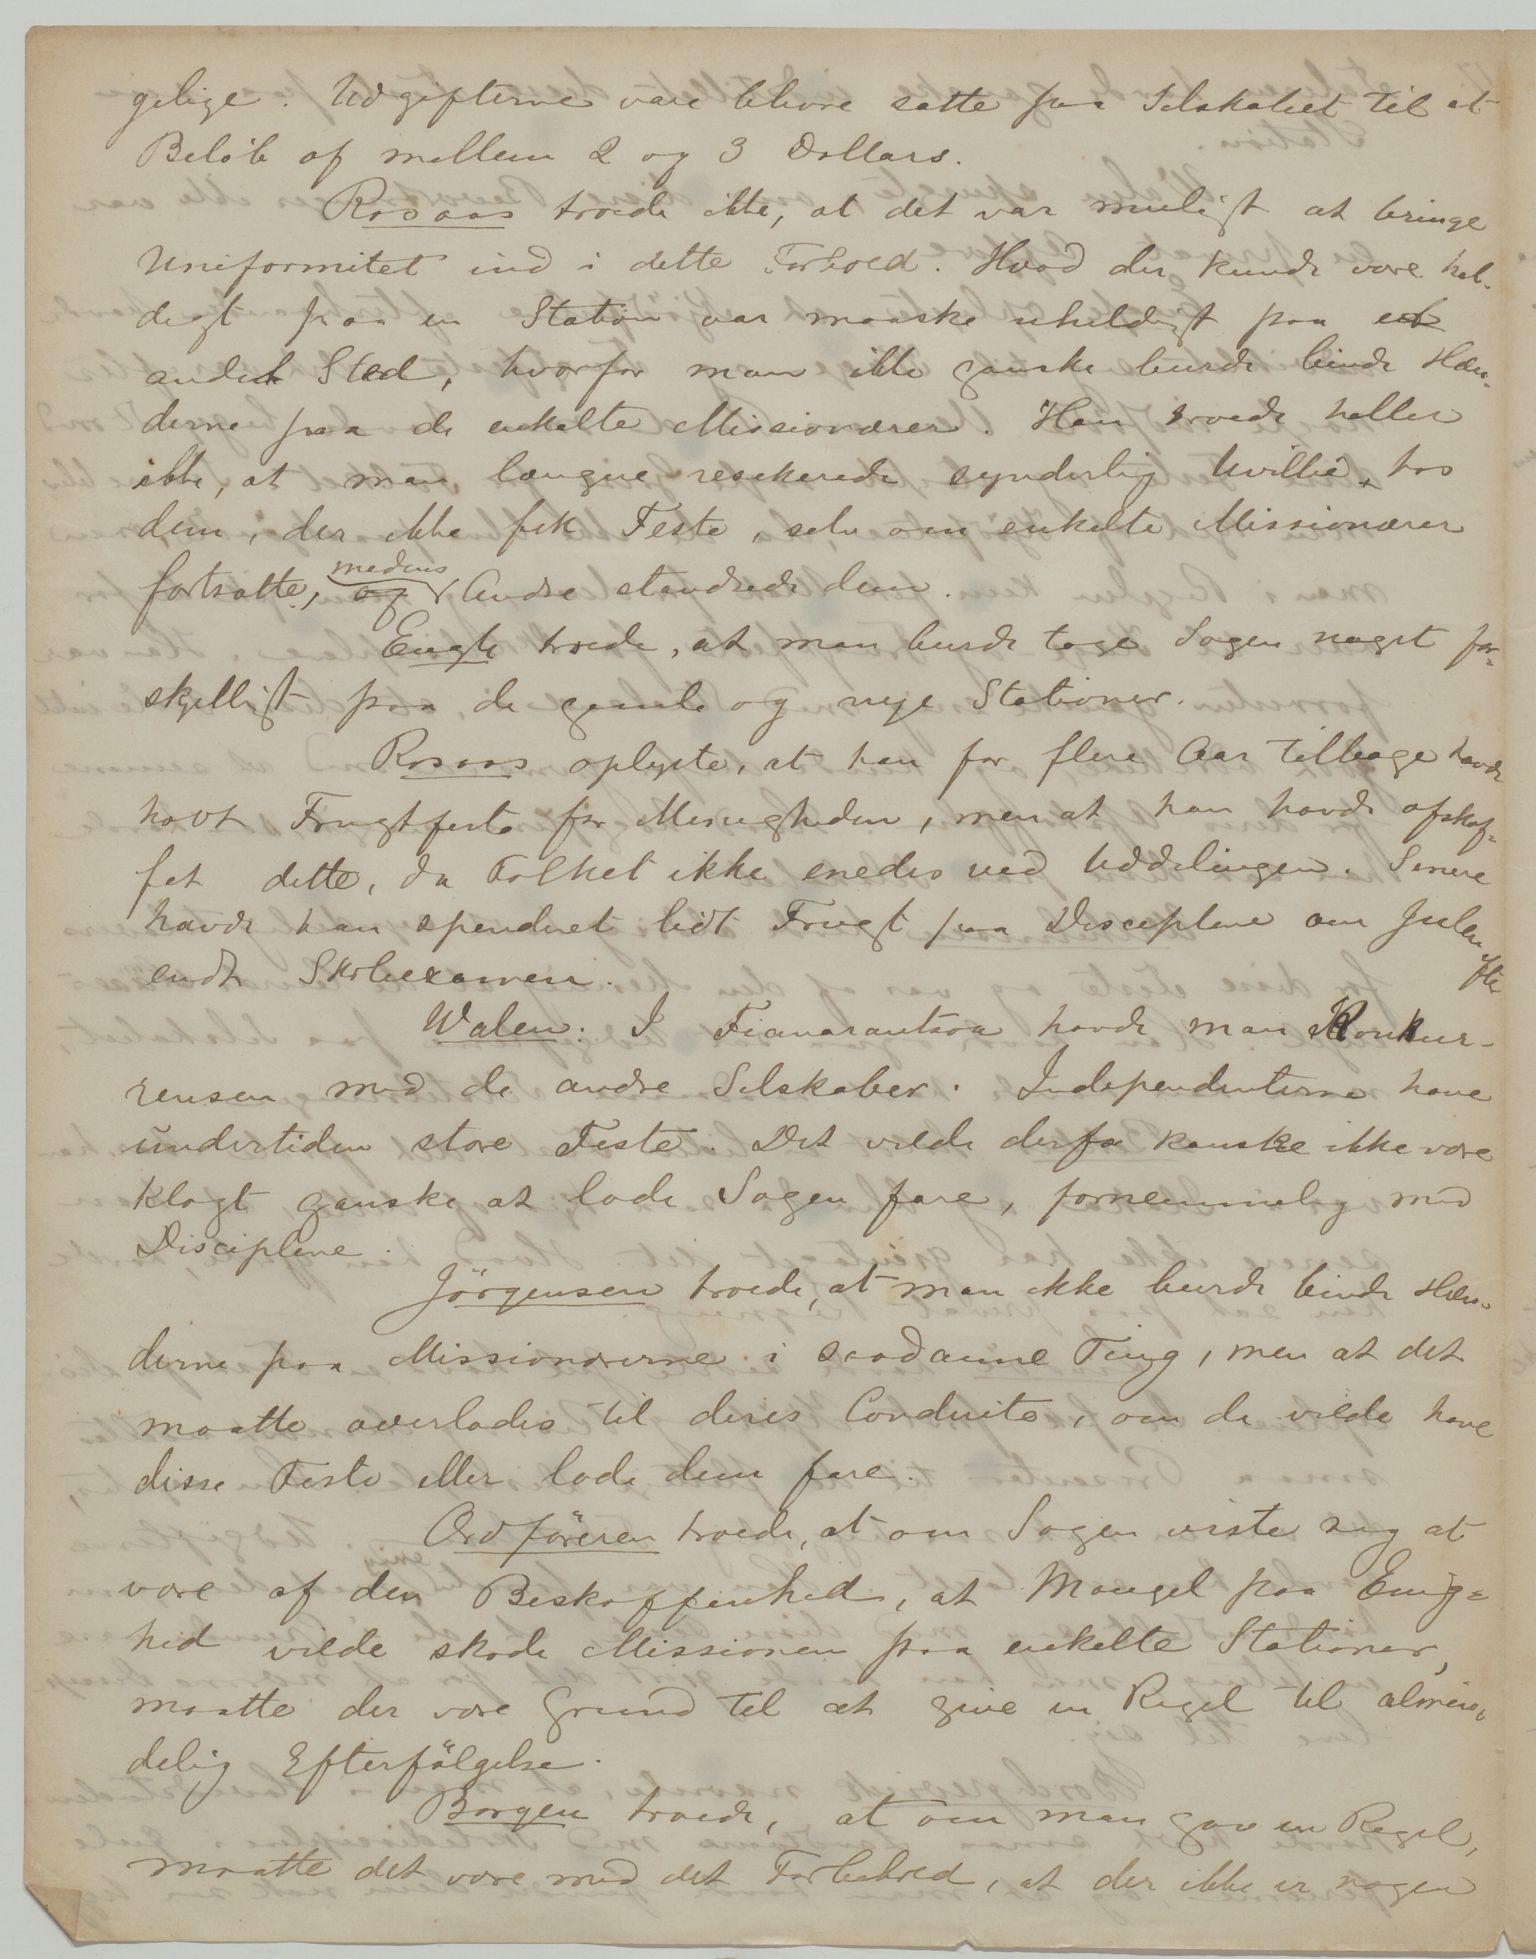 gelige. Udgifterne vare blevne satte paa Selskabet til et
Belöb af mellem 2 og 3 Dollars.
Rosaas troede ikke, at det var muligt at bringe
Uniformitet ind i dette Forhold. Hvad der kunde være hel-
digt paa en Station var maaske uheldigt paa et
andet Sted, hvorfor man ikke ganske burde binde Hæn-
derne paa de enkelte Missionærer. Han troede heller
ikke, at man længere resikerede synderlig Uvillie hos
dem, der ikke fik Feste, selv om enkelte Missionærer
fortsatte, medens Andre standsede dem.
Engh troede, at man burde tage Sagen noget for-
skjelligt paa de gamle og nye Stationer.
Rosaas oplyste, at han for flere Aar tilbage havde
havt Frugtfeste for Menigheden, men at han havde afskaf-
fet dette, da Folket ikke enedes ved Uddelingen. Senere
havde han spenderet lidt Frugt paa Disciplene om Julen efter
endt Skoleexamen.
Walen: I Fianarantsoa havde man Konkur-
rensen med de andre Selskaber. Independenterne have
undertiden store Feste. Det vilde derfor kanske ikke være
klogt ganske at lade Sagen fare, fornemmelig med
Disciplene.
Jörgensen troede, at man ikke burde binde Hæn-
derne paa Missionærerne i saadanne Ting, men at det
maatte overlades til deres Conduite, om de vilde have
disse Feste eller lade dem fare.
Ordföreren troede, at om Sagen viste sig at
være af den Beskaffenhed, at Mangel paa Enig-
hed vilde skade Missionen paa enkelte Stationer,
maatte der være Grund til at give en Regel til almin-
delig Efterfölgelse.
Borgen troede, at om man gav en Regel,
maatte det være med det Forbehold, at der ikke er nogen